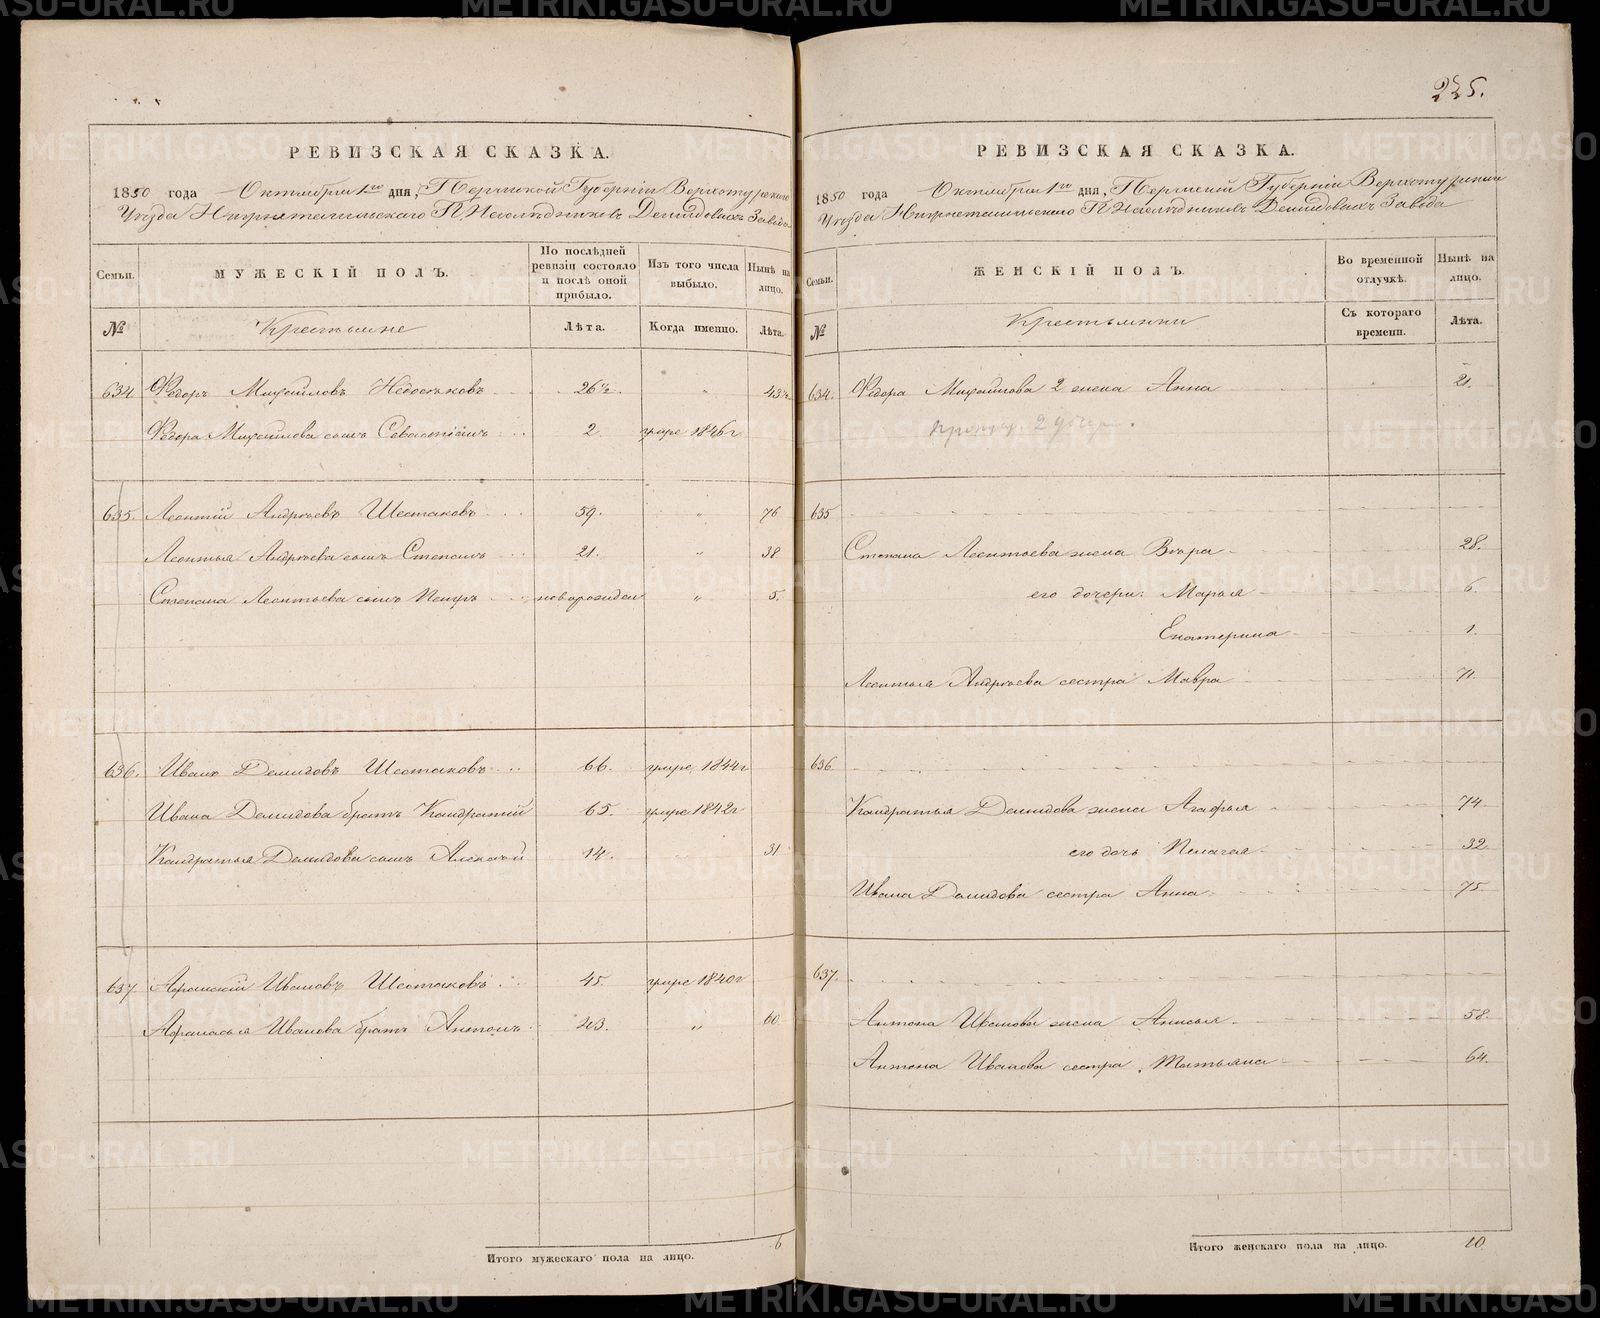 225.
РЕВИЗСКАЯ СКАЗКА.
1850 года Октября 1го дня, Пермской Губернiи Верхотурскаго
Уѣзда Нижнетагильскаго Г. Наслѣдниковъ Демидовыхъ Завода
Семьи. МУЖЕСКIЙ ПОЛЪ. По послѣдней ревизiи состояло и послѣ оной прибыло. Изъ того числа выбыло. Нынѣ на лицо.
№ Крестьяне Лѣта. Когда именно. Лѣта.
634 Ѳедоръ Михайловъ 26½ " 43½
Ѳедора Михайлова сынъ Севастiянъ 2 умре 1846г
635. Леонтiй Андреевъ Шестаковъ 59. " 76
Леонтья Андреева сынъ Степанъ 21. " 38
Степана Леонтьева сынъ Петръ новорожден " 5.
636. Иванъ Демидовъ Шестаковъ 66. умре 1844г
Ивана Демидова братъ Кондратiй 65. умре 1842г
Кондратья Демидова сынъ Алексѣй 14. 31
637. Иванов Шестаковъ 45. умре 1840г
Афанасья Иванова братъ Антонъ 43. " 60
Итого мужескаго пола на лицо. 6
РЕВИЗСКАЯ СКАЗКА.
1850 года Октября 1го дня, Пермской Губернiи Верхотурскаго
Уѣзда Нижнетагильскаго Г. Наслѣдниковъ Демидовыхъ Завода
Семьи. ЖЕНСКIЙ ПОЛЪ. Во временной отлучкѣ. Нынѣ на лицо.
№ Крестьянки Съ котораго времени. Лѣта.
634. Ѳедора Михайлова 2 жена Анна " 21.
635
Степана Леонтьева жена Вѣра 28.
его дочери: Марья 6.
Екатерина 1.
Леонтья Андреева сестра Мавра 71.
636
Кондратья Демидова жена Агафья 74.
его дочь Пелагея 32
Ивана Демидова сестра Анна 75
637.
Антона Иванова жена Анисья 58.
Антона Иванова сестра Татьяна 64.
Итого женскаго пола на лицо. 10.
METRIKI.GASO-URAL.RU